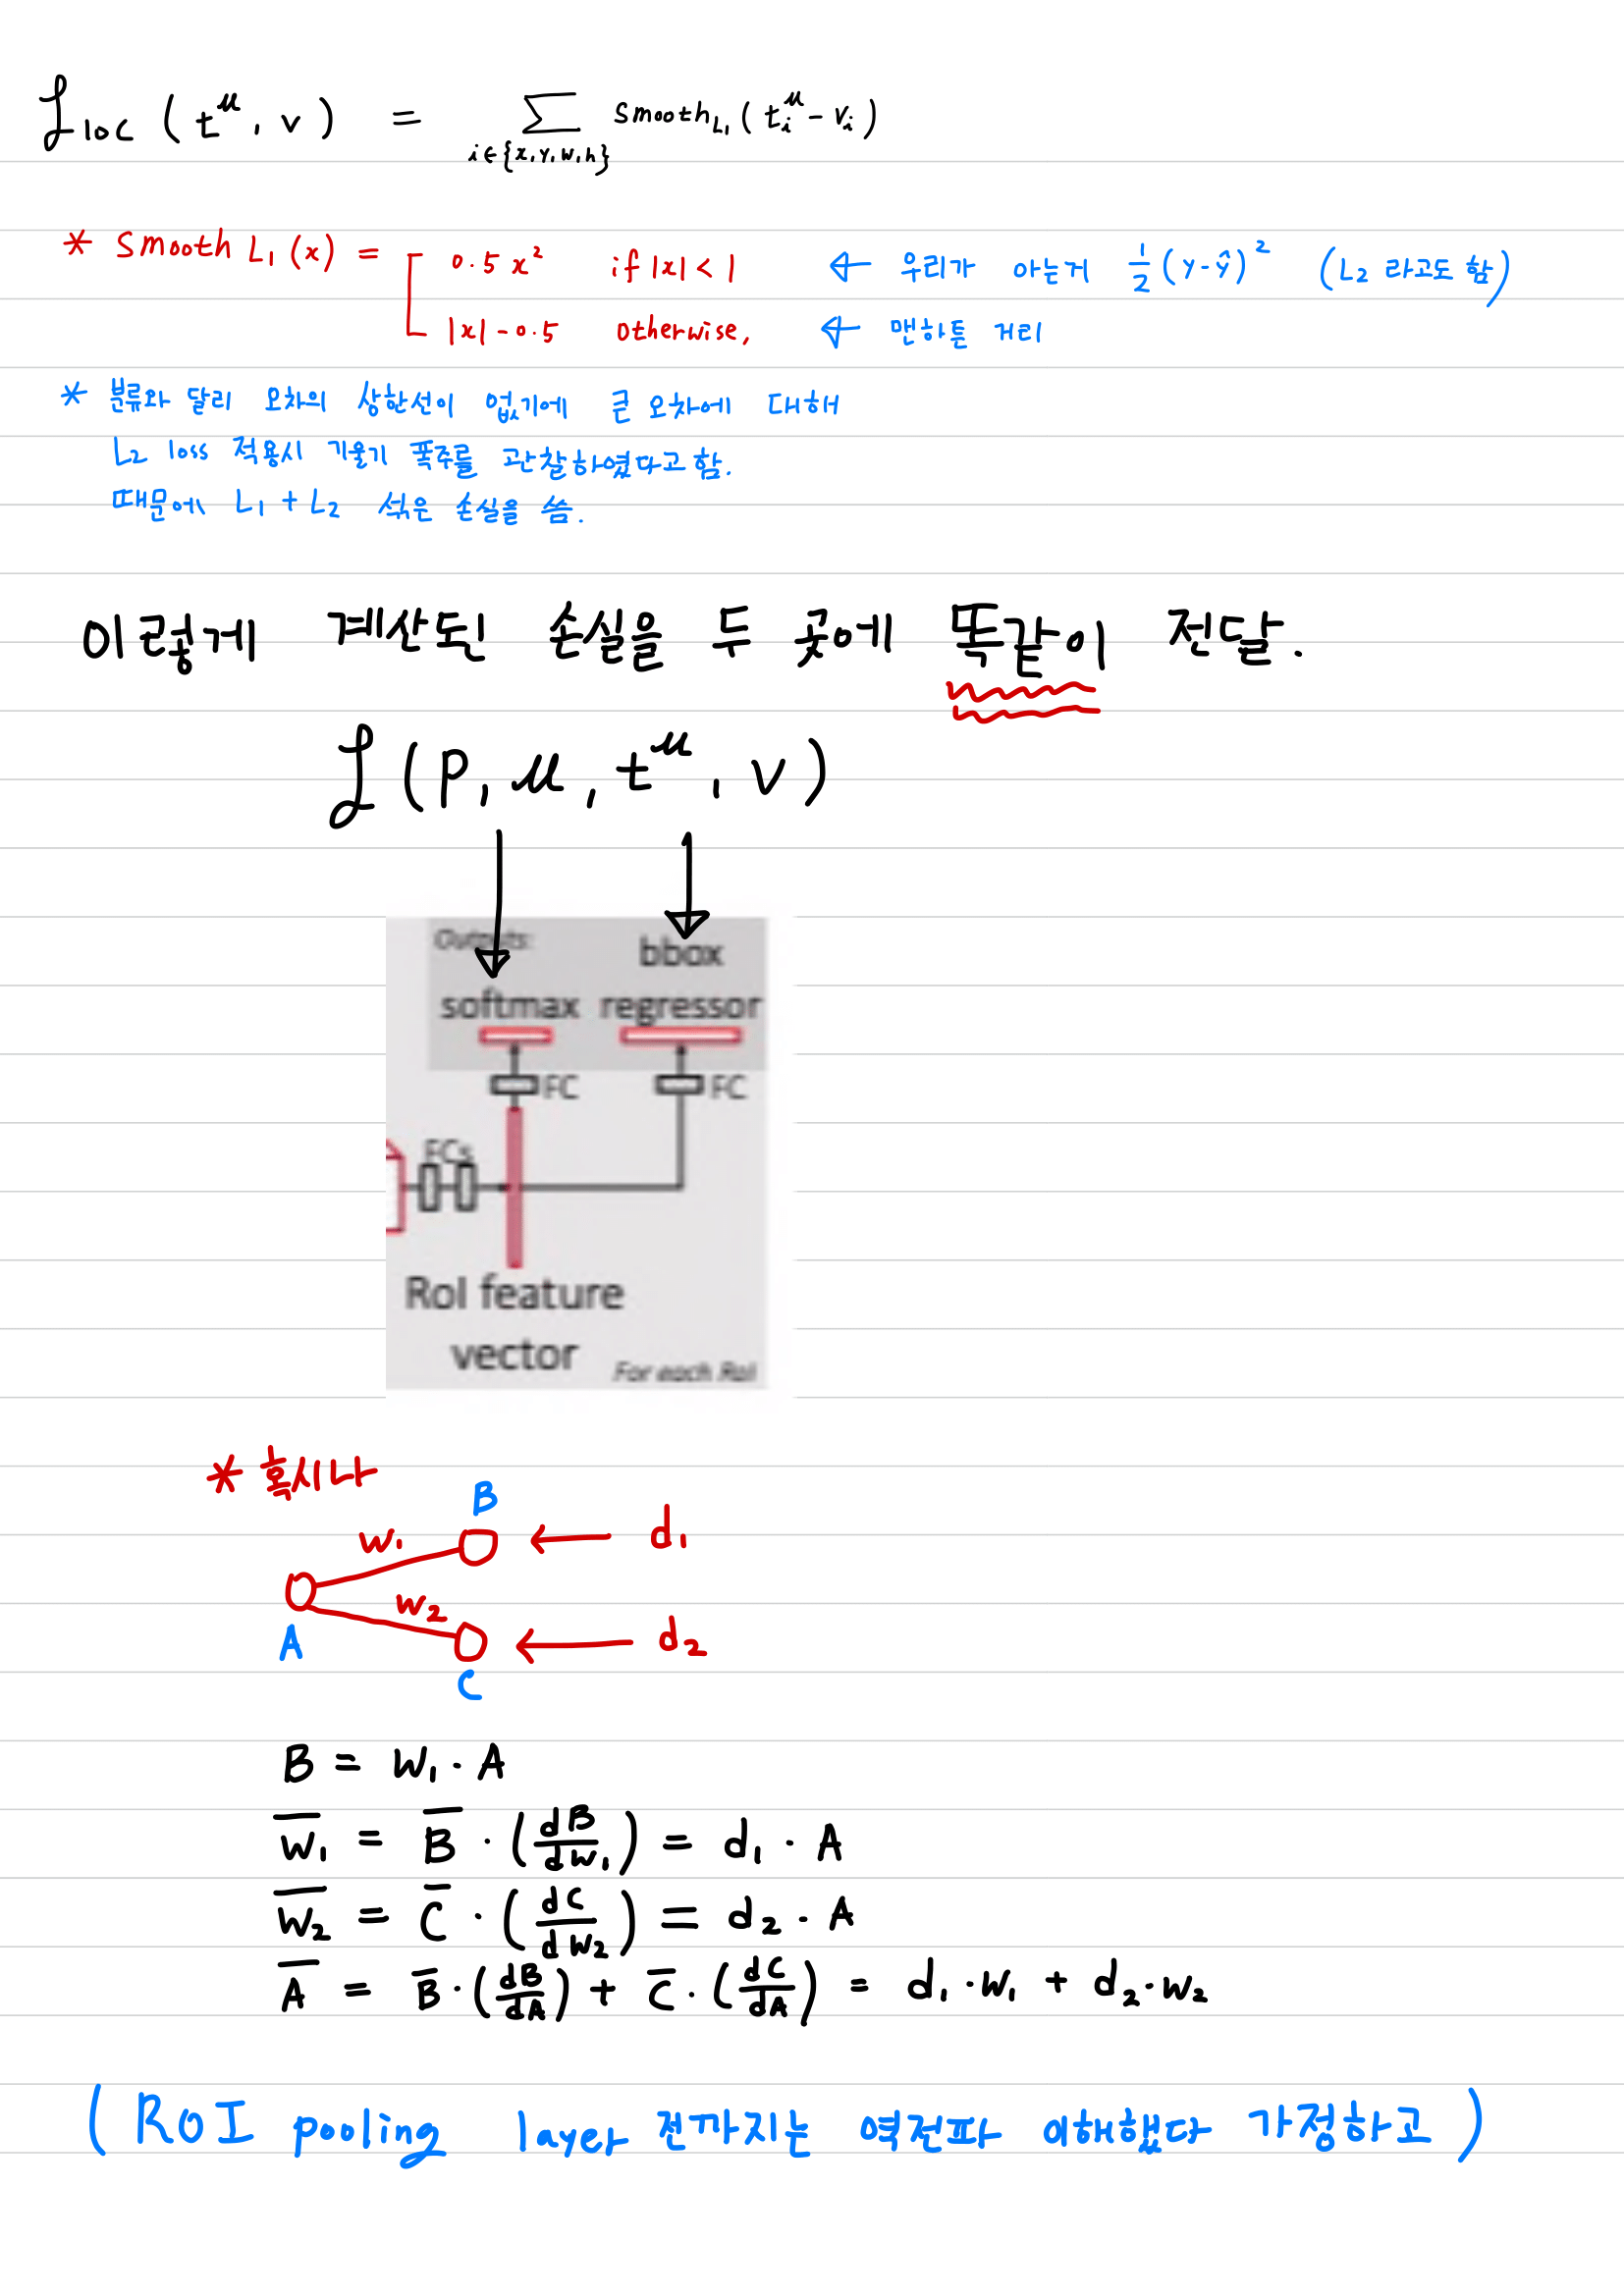 ℒloc (t^u, v) = Σ i∈{x,y,w,h} smooth_L1 (t_i^u - v_i)
* smooth L1 (x) = [ 0.5 x² if |x| < 1 ← 우리가 아는거 1/2 (y-ŷ)² (L2 라고도 함)
|x| - 0.5 otherwise, ← 맨하튼 거리
* 분류와 달리 오차의 상한선이 없기에 큰 오차에 대해
L2 loss 적용시 기울기 폭주를 관찰하였다고함.
때문에 L1 + L2 섞은 손실을 씀.
이렇게 계산된 손실을 두 곳에 똑같이 전달.
ℒ (p, u, t^u, v)
Outputs:
bbox
softmax regressor
FC FC
FCs
RoI feature
vector
For each RoI
* 혹시나
B
w1 d1
w2
A d2
C
B = w1 · A
w̅1 = B̅ · (dB/dw1) = d1 · A
w̅2 = C̅ · (dC/dw2) = d2 · A
A̅ = B̅ · (dB/dA) + C̅ · (dC/dA) = d1 · w1 + d2 · w2
(ROI pooling layer 전까지는 역전파 이해했다 가정하고)